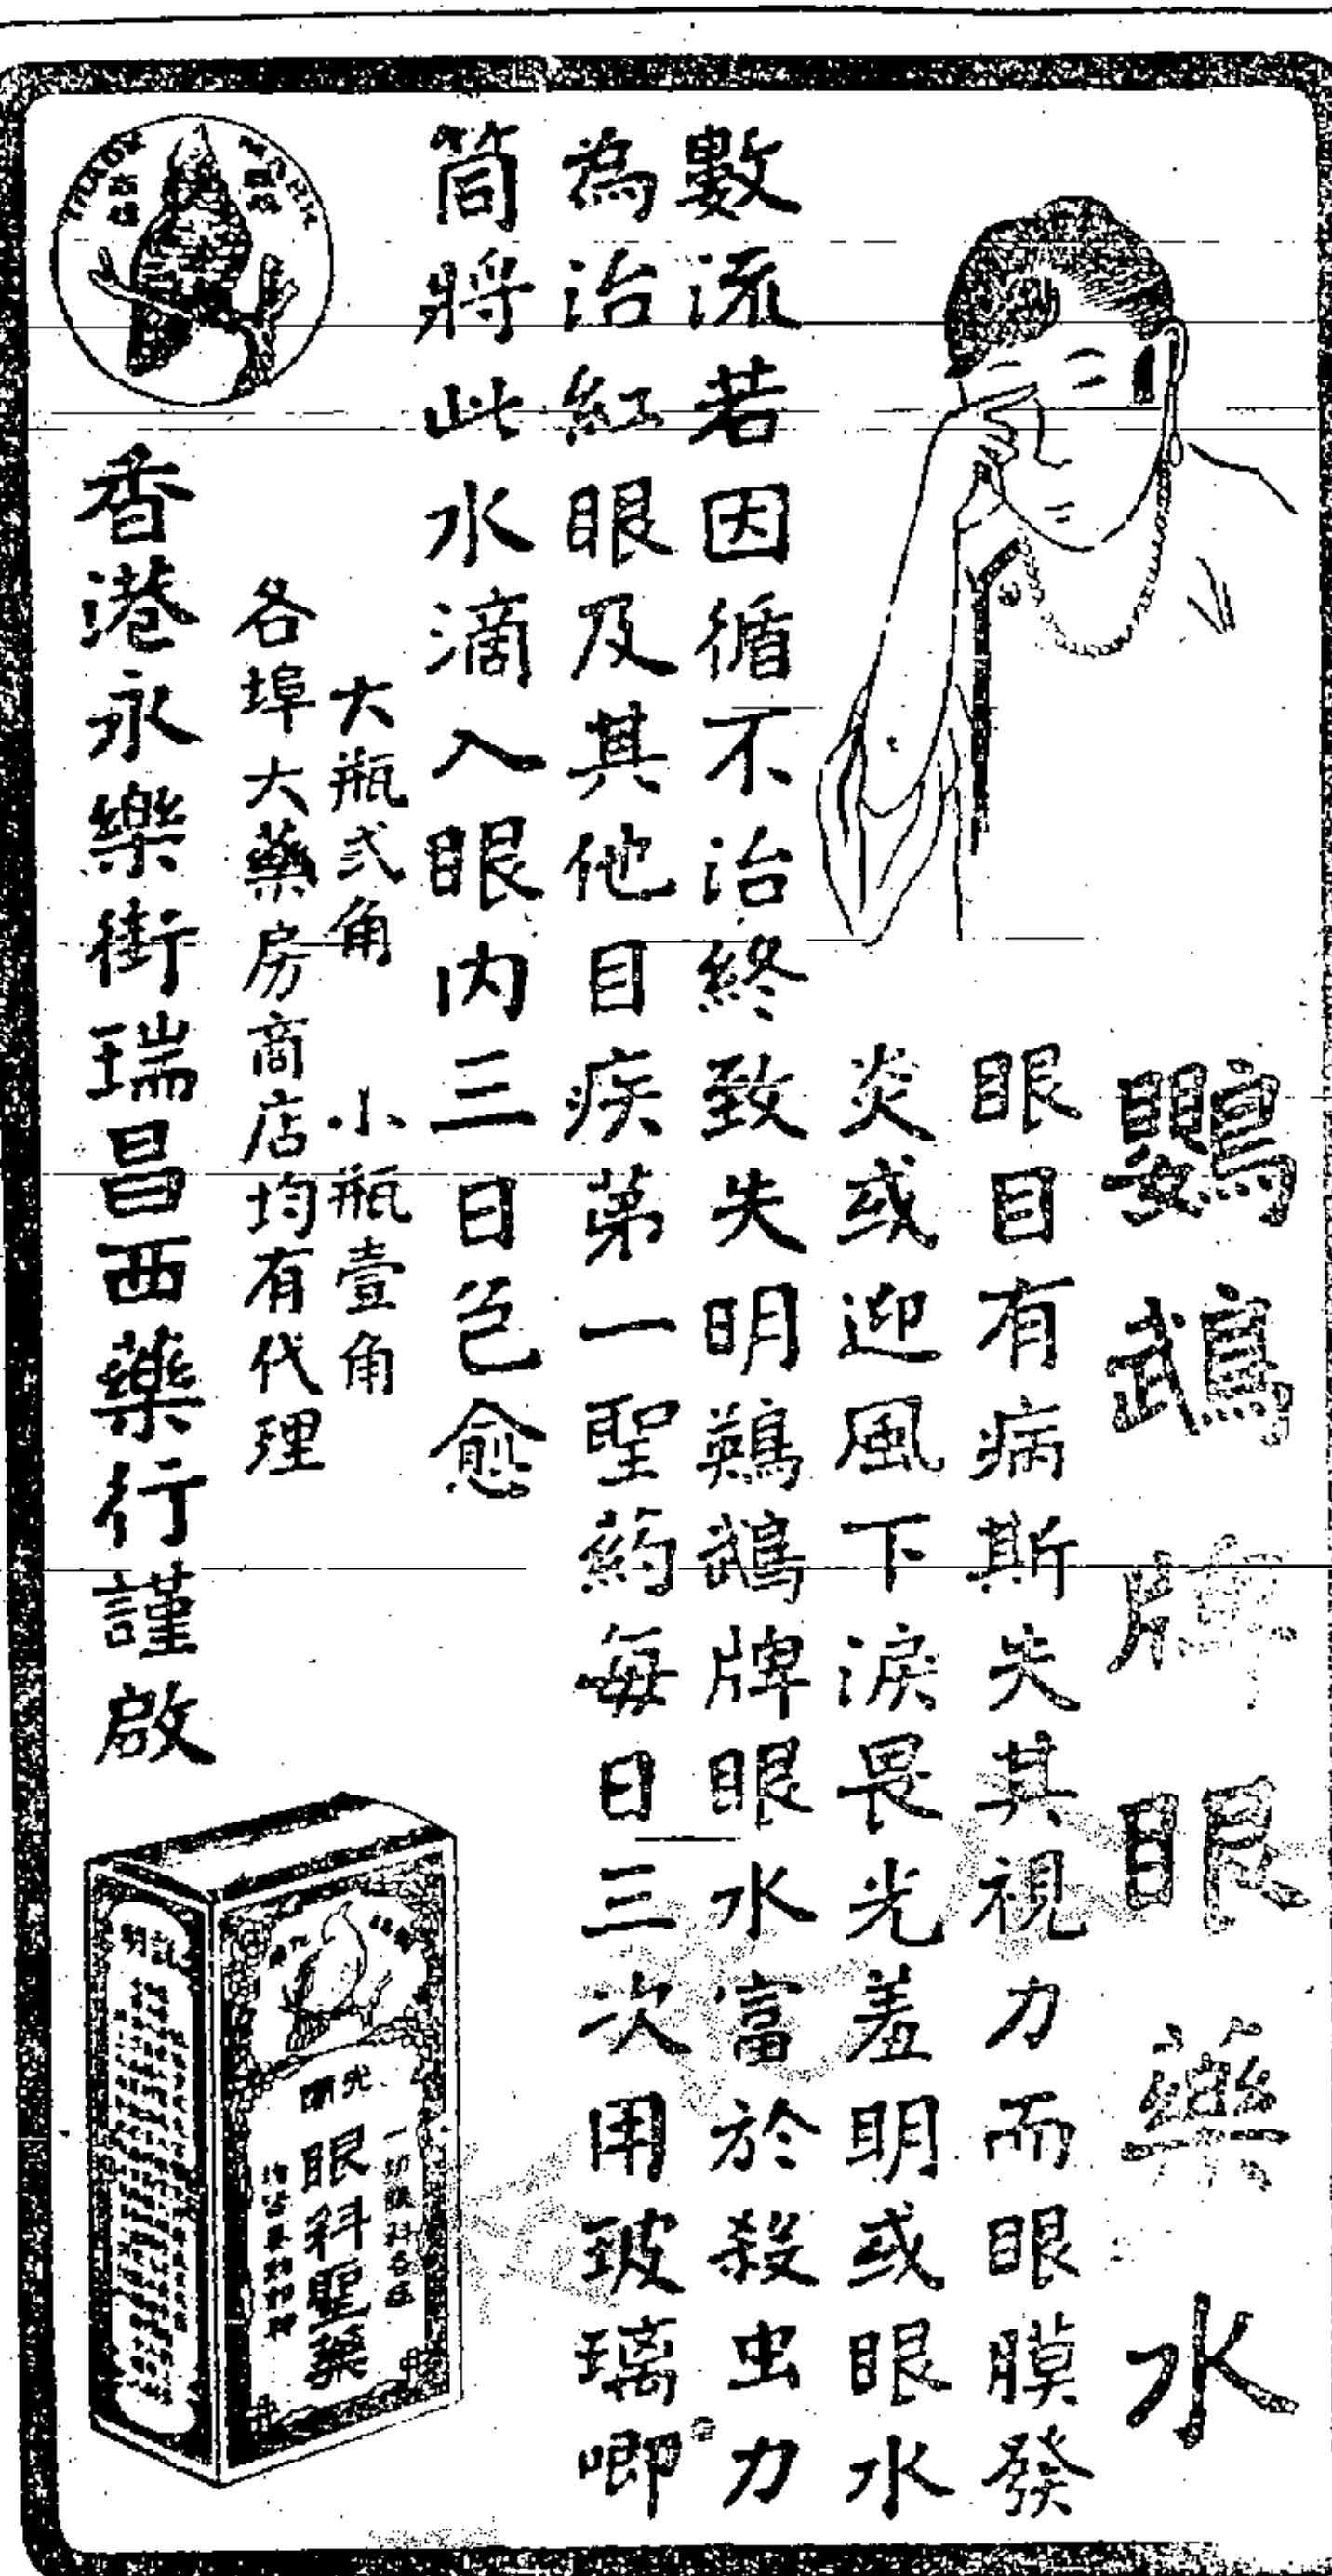 鸚鵡牌眼藥水
眼目有病斯失其視力而眼膜發
炎或迎風下淚畏光羞明或眼水
數流若因循不治終致失明鸚鵡牌眼水富於殺虫力
為治紅眼及其他目疾第一聖葯每日三次用玻璃唧
筒將此水滴入眼內三日包愈
大瓶弍角 小瓶壹角
各埠大藥房商店均有代理
香港永樂街瑞昌西藥行謹啟
TRADE MARK
光明
眼科聖藥